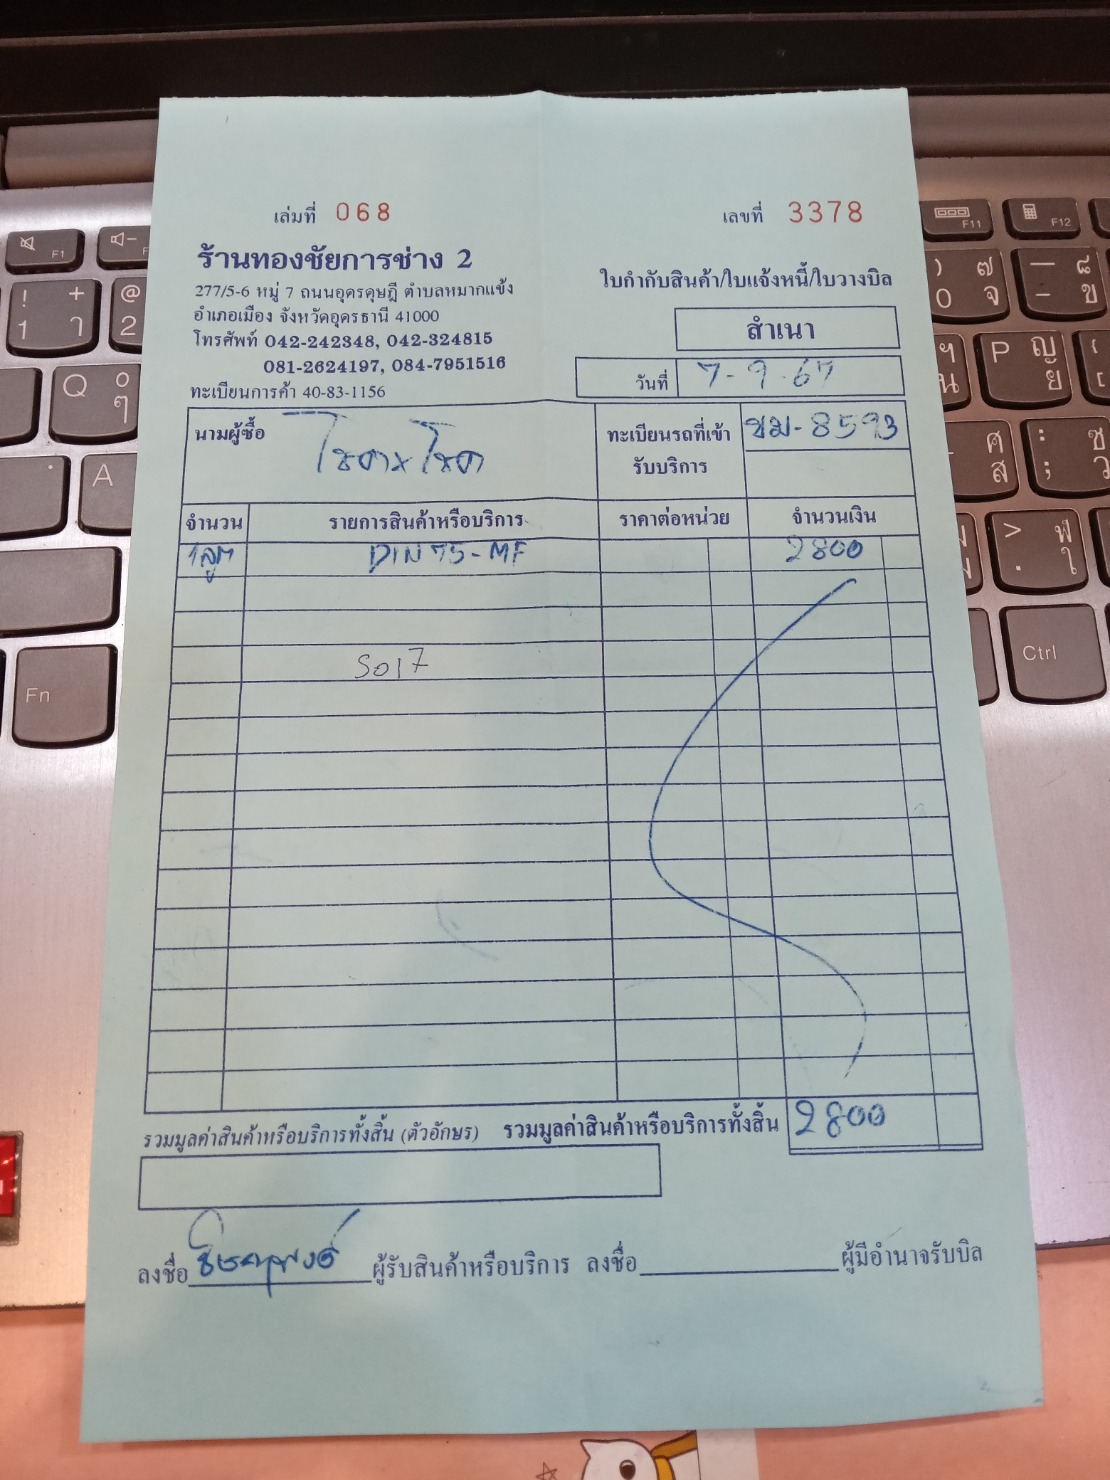 เล่มที่ 068
เลขที่ 3378
ร้านทองชัยการช่าง 2
277/5-6 หมู่ 7 ถนนอุดรดุษฎี ตำบลหมากแข้ง
อำเภอเมือง จังหวัดอุดรธานี 41000
โทรศัพท์ 042-242348, 042-324815
081-2624197, 084-7951516
ทะเบียนการค้า 40-83-1156
ใบกำกับสินค้า/ใบแจ้งหนี้/ใบวางบิล
สำเนา
วันที่ 7-9-67
นามผู้ซื้อ
ทะเบียนรถที่เข้ารับบริการ ขม-8593
จำนวน รายการสินค้าหรือบริการ ราคาต่อหน่วย จำนวนเงิน
1ลูก DIN 75-MF 2800
S017
รวมมูลค่าสินค้าหรือบริการทั้งสิ้น (ตัวอักษร) รวมมูลค่าสินค้าหรือบริการทั้งสิ้น 2800
ลงชื่อ ผู้รับสินค้าหรือบริการ ลงชื่อ ผู้มีอำนาจรับบิล
F1
F11
F12
Q
A
P
Fn
Ctrl